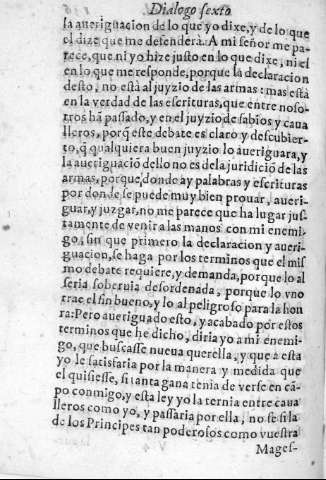 Dialogo sexto
la aueriguacion de lo que yo dixe, y de lo que
el dize que me defenderà. A mi señor me pa-
rece, que ni yo hize justo en lo que dixe, ni el
en lo que me responde, porque la declaracion
desto, no està al juyzio de las armas: mas està
en la verdad de las escrituras, que entre noso-
tros hã passado, y en el juyzio de sabios y caua
lleros, porq̃ este debate es claro y descubier-
to, q̃ qualquiera buen juyzio lo aueriguara, y
la aueriguaciõ dello no es de la juridiciõ de las
armas, porque, donde ay palabras y escrituras
por donde se puede muy bien prouar, aueri-
guar, y juzgar, no me parece que ha lugar jus-
tamente de venir a las manos con mi enemi-
go, sin que primero la declaracion y aueri-
guacion, se haga por los terminos que el mis
mo debate requiere, y demanda, porque lo al
seria soberuia desordenada, porque lo vno
trae el fin bueno, y lo al peligroso para la hon
ra: Pero aueriguado esto, y acabado por estos
terminos que he dicho, diria yo a mi enemi-
go, que buscasse nueua querella, y que a esta
yo le satisfaria por la manera y medida que
el quisiesse, si tanta gana tenia de verse en cã-
po conmigo, y esta ley yo la ternia entre caua
lleros como yo, y passaria por ella, no se si la
de los Principes tan poderosos como vuestra
Mages-